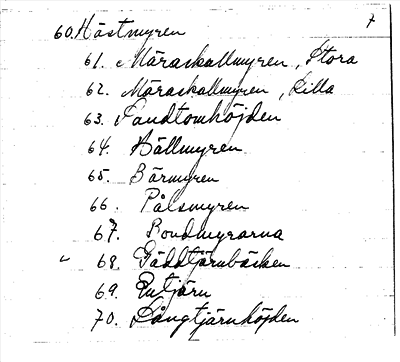 7
60. Hästmyren
61. Märaskallmyren, Stora
62. Märaskallmyren, Lilla
63. Sandtomhöjden
64. Hällmyren
65. Bärmyren
66. Pålsmyren
67. Bondmyrarna
68. Gäddtjärnbäcken
69. Entjärn
70. Långtjärnhöjden